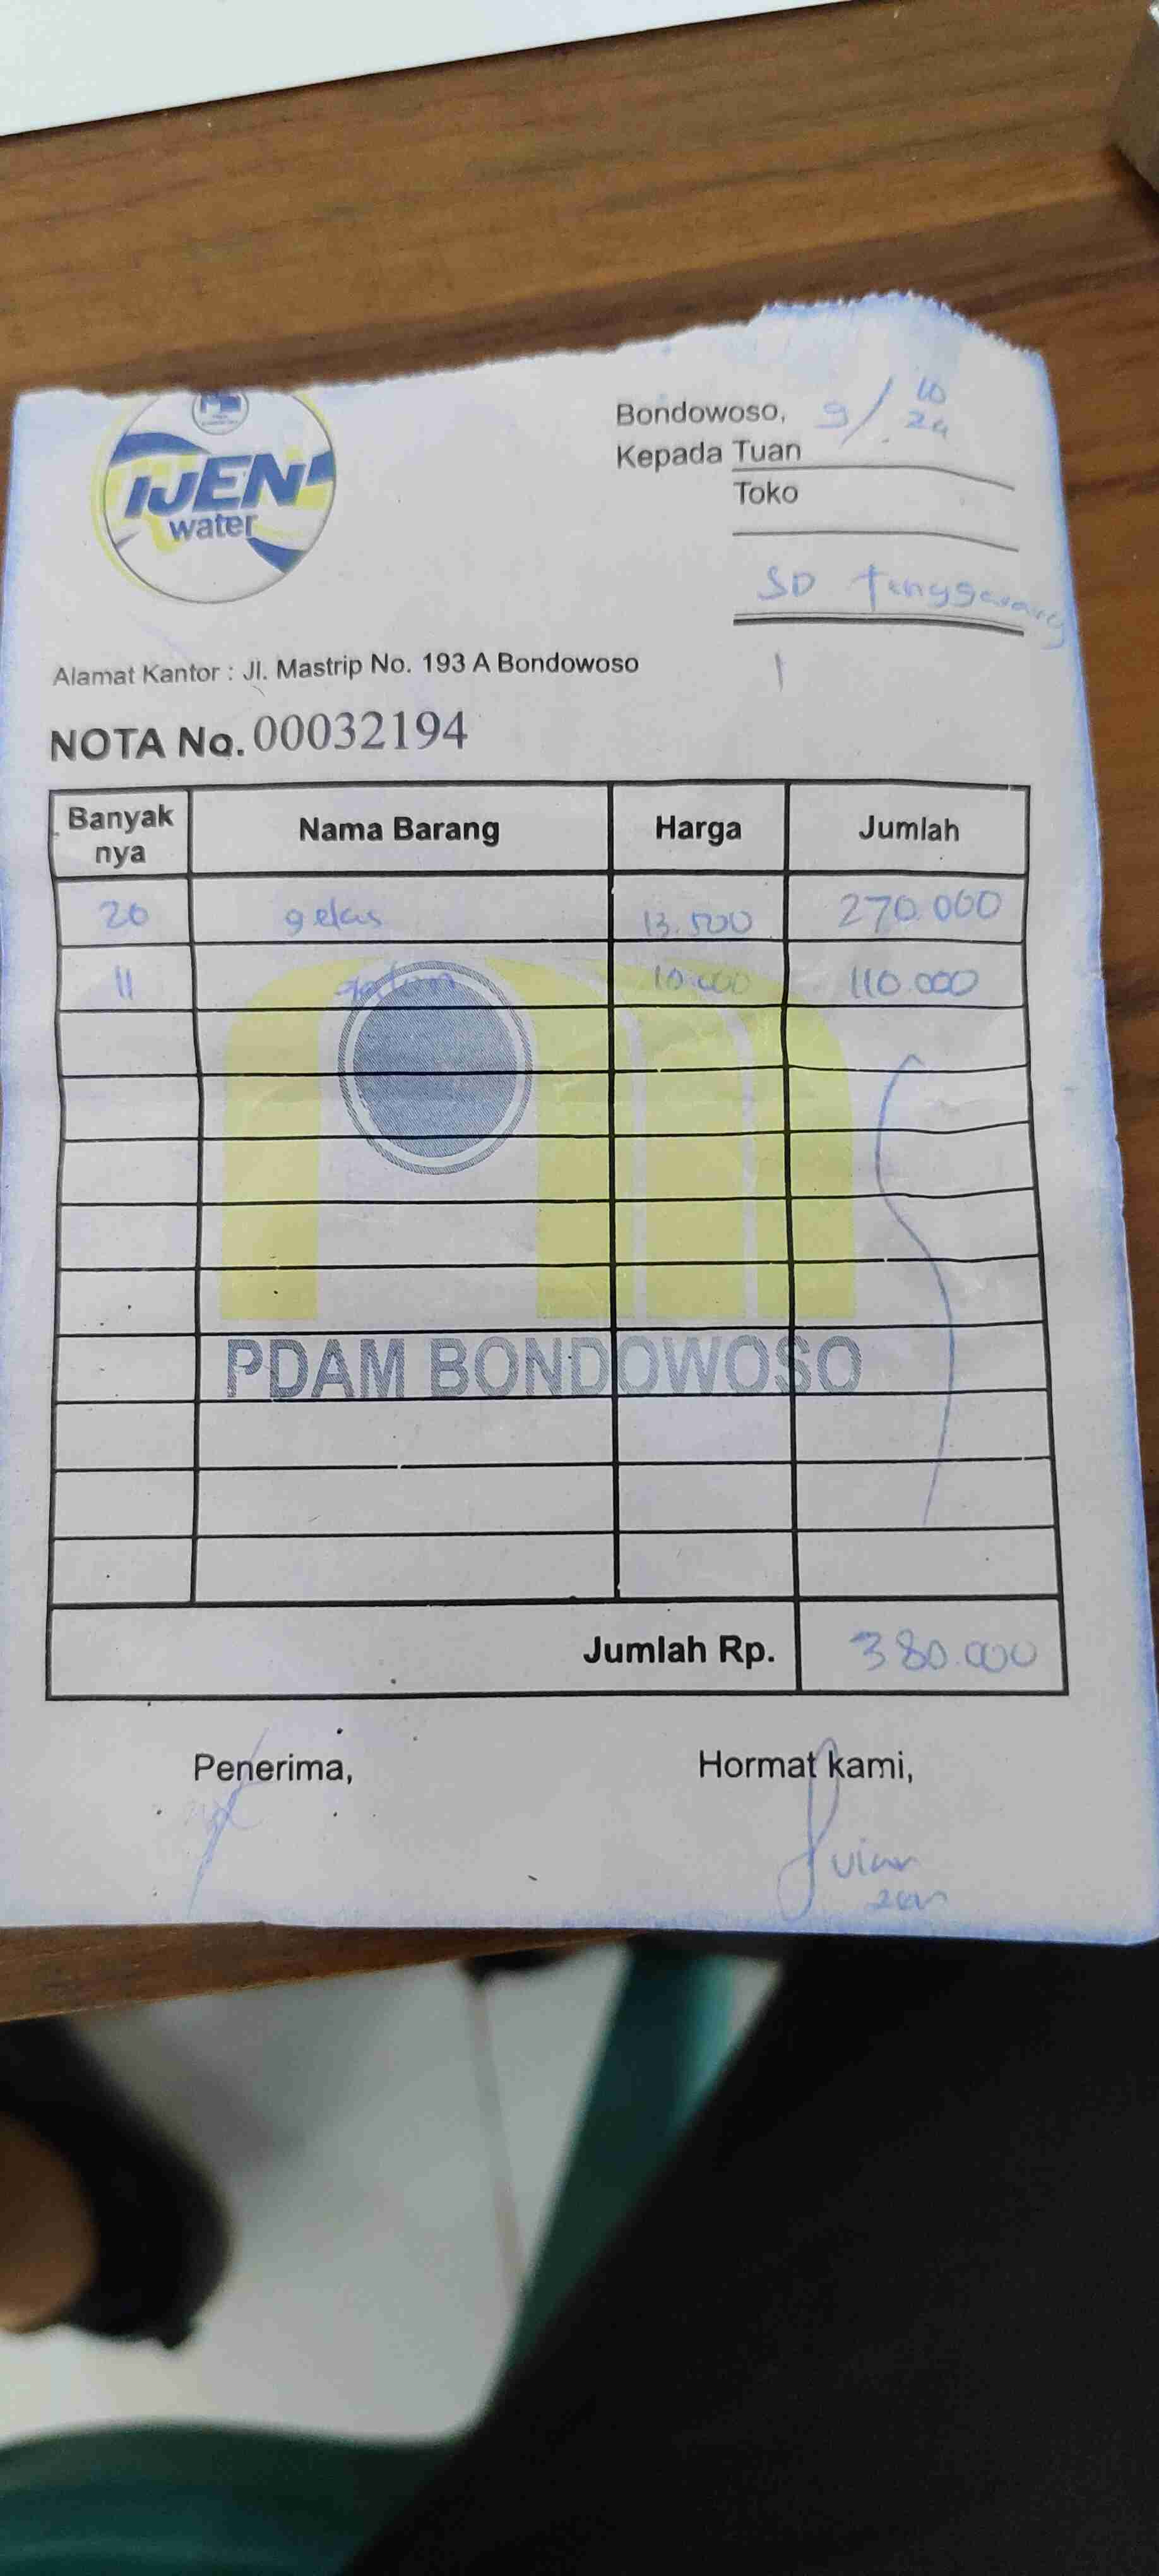 IJEN
water
Bondowoso, 9/10 24
Kepada Tuan
Toko
SD Tenggarang
Alamat Kantor : Jl. Mastrip No. 193 A Bondowoso
NOTA No. 00032194
Banyak nya Nama Barang Harga Jumlah
20 gelas 13.500 270.000
11 galon 10.000 110.000
PDAM BONDOWOSO
Jumlah Rp. 380.000
Penerima, Hormat kami,